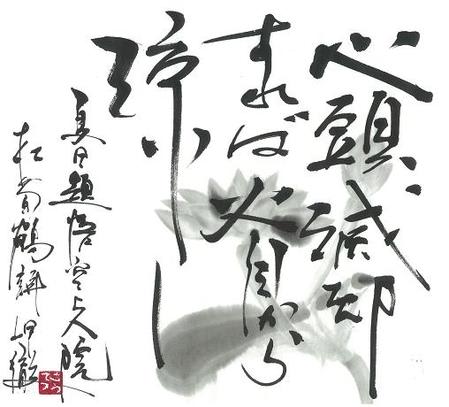 心頭滅却
すれば火自から
涼し
夏日題悟空上人院
杜荀鶴詩